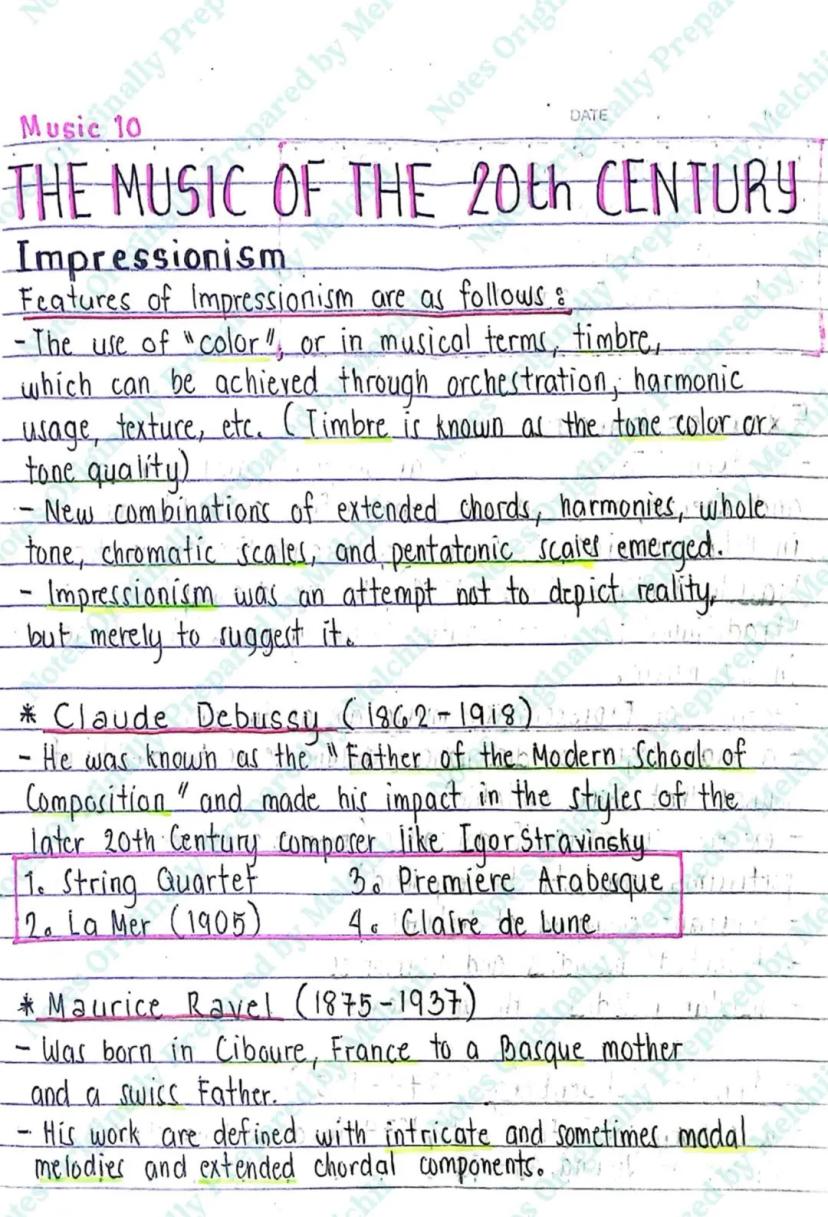 Music 10
DATE
THE MUSIC OF THE 20th CENTURY
Impressionism
Features of Impressionism are as follows :
- The use of "color", or in musical terms, timbre,
which can be achieved through orchestration, harmonic
usage, texture, etc. (Timbre is known as the tone color or
tone quality)
- New combinations of extended chords, harmonies, whole
tone, chromatic scales, and pentatonic scales emerged.
- Impressionism was an attempt not to depict reality,
but merely to suggest it.
* Claude Debussy (1862-1918)
- He was known as the "Father of the Modern School of
Composition" and made his impact in the styles of the
later 20th Century composer like Igor Stravinsky
1. String Quartet 3. Premiere Arabesque
2. La Mer (1905) 4. Claire de Lune
* Maurice Ravel (1875-1937)
- Was born in Ciboure, France to a Basque mother
and a swiss Father.
- His work are defined with intricate and sometimes modal
melodies and extended chordal components.
Notes Originally Prepared by Melchii